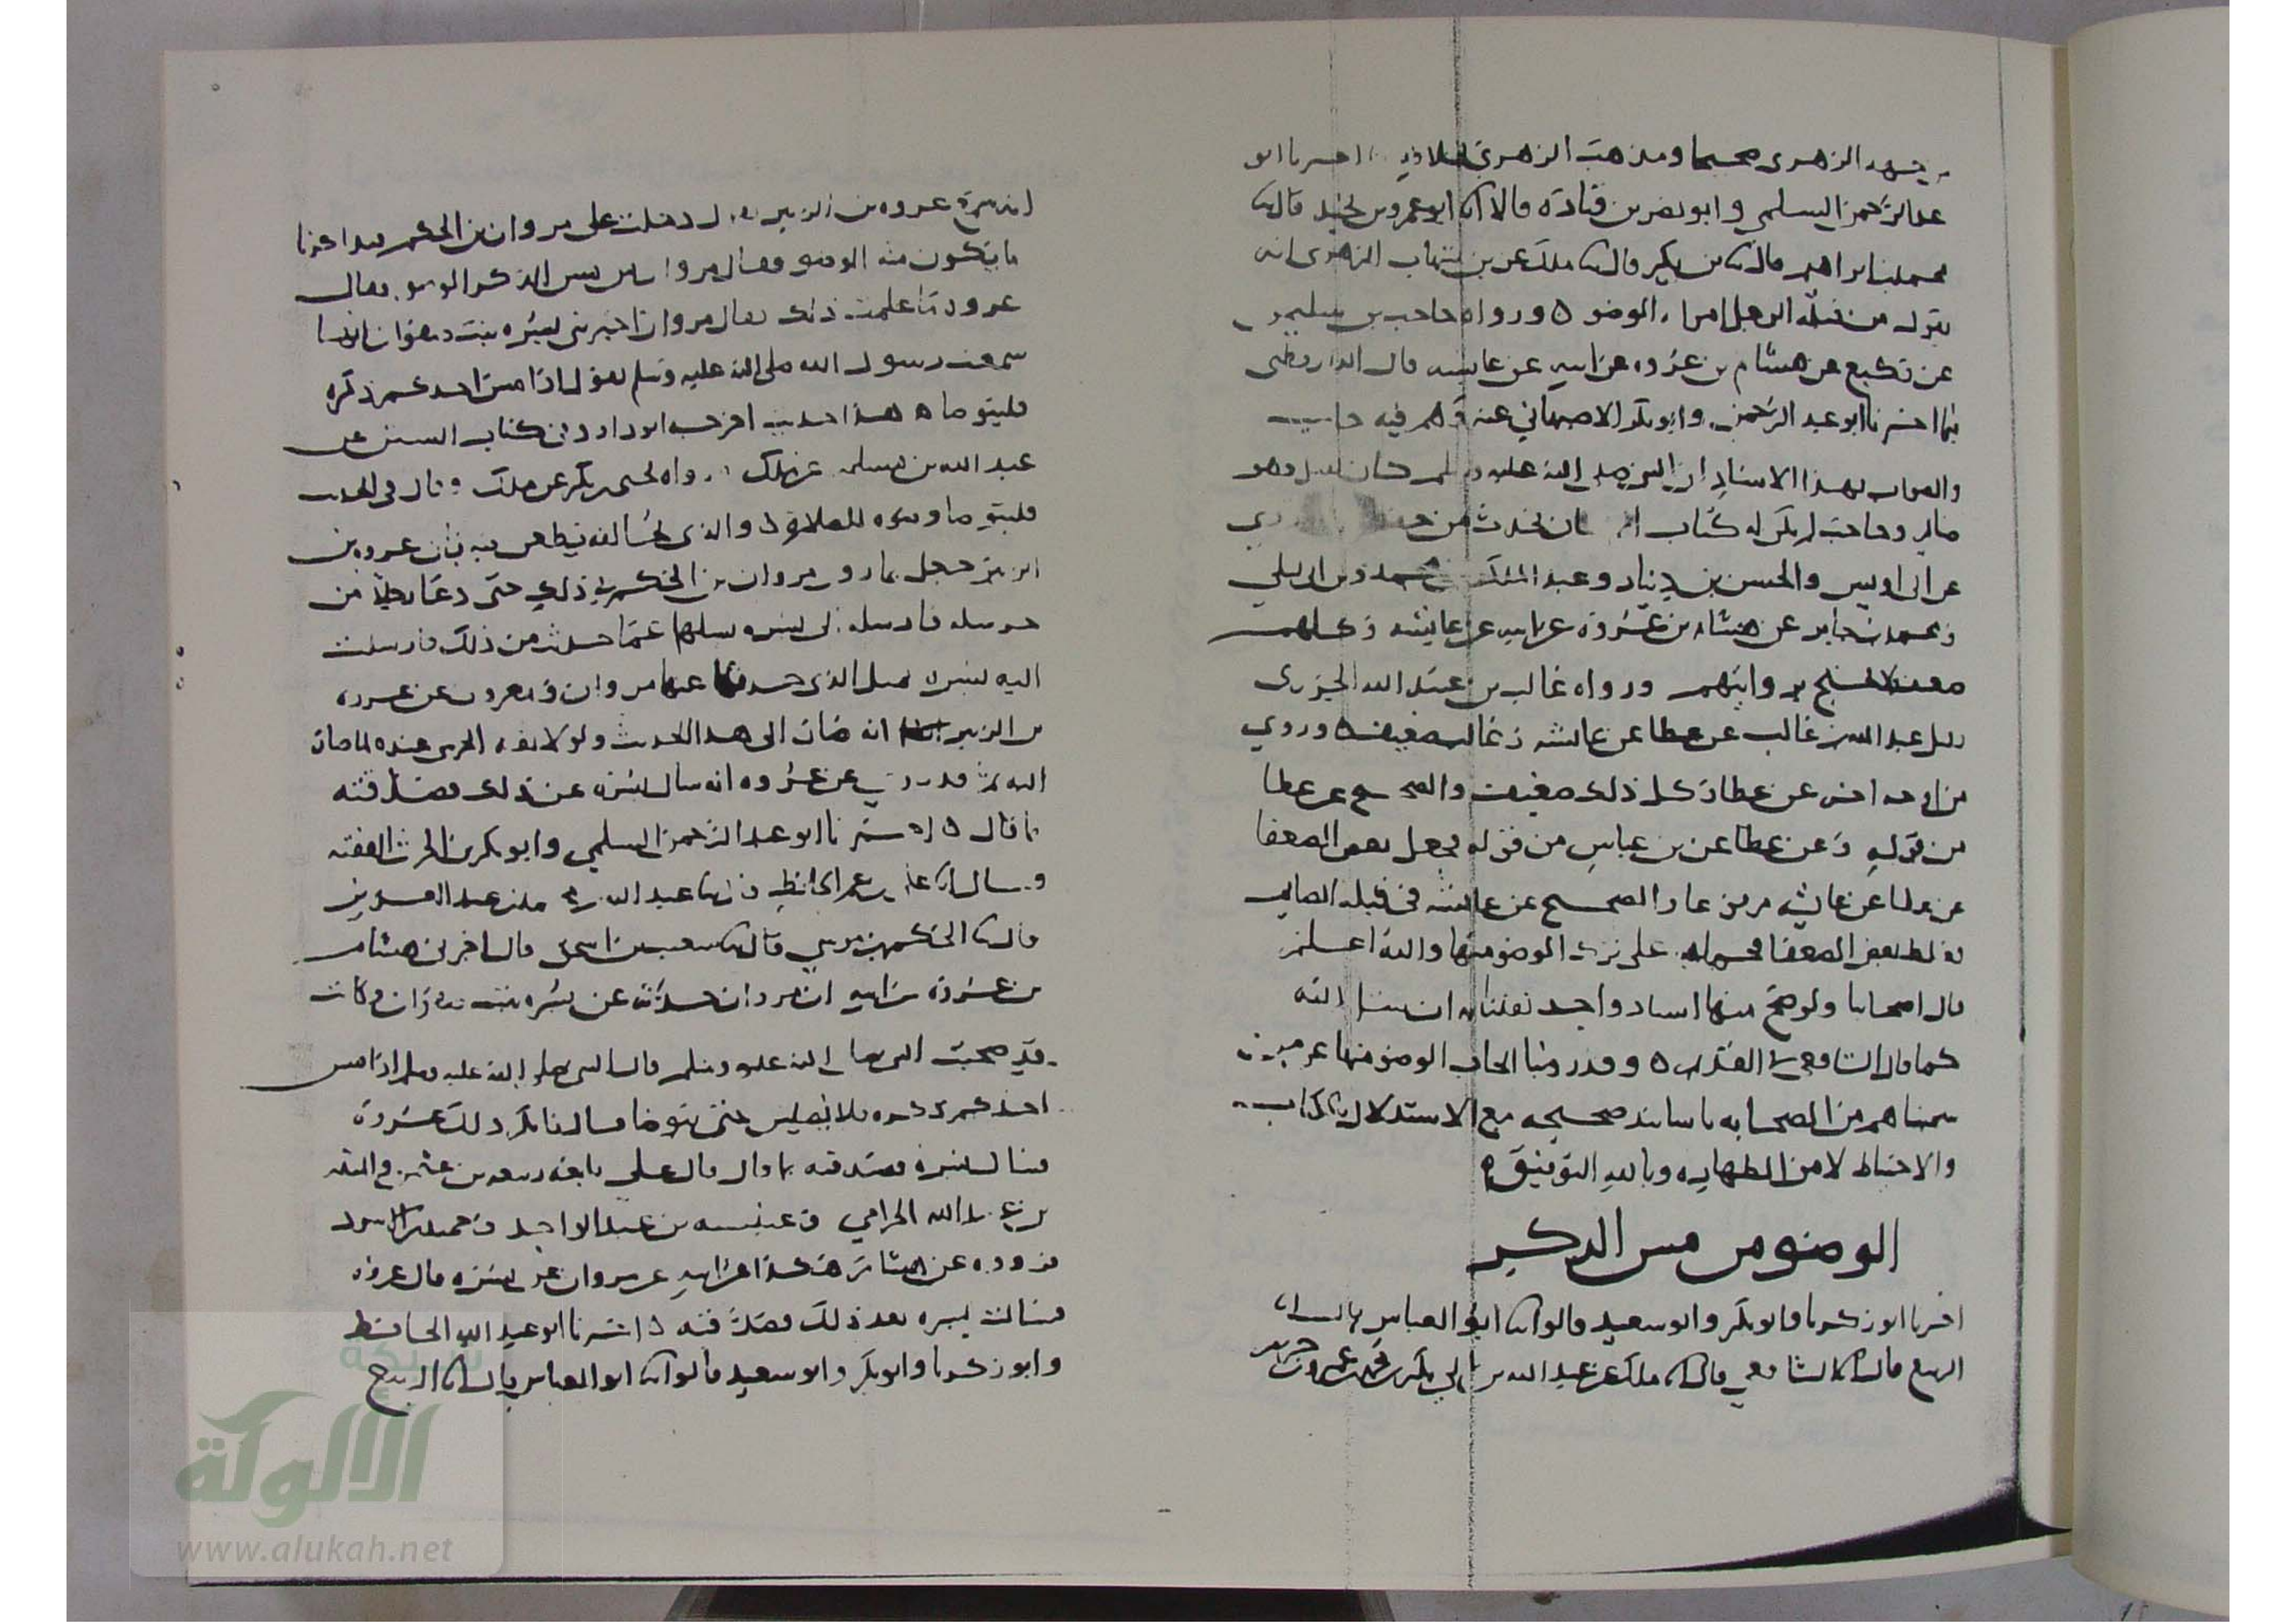 الزهري صحيحا ومذهب الزهري اخبرنا ابو
عبد الرحمن السلمي وابو نصر بن قتادة قالا انا ابو عمرو بن نجيد قال نا
محمد بن ابراهيم قال نا بن بكير قال نا ملك عن بن شهاب الزهري انه
يقول من قبلة الرجل امراته الوضوء ورواه حاجب بن سليمن
عن وكيع عن هشام بن عروه عن ابيه عن عايشه قال الدارقطني
فيما اخبرنا ابو عبد الرحمن وابو بكر الاصبهاني عنه وهم فيه حاجب
والصواب بهذا الاسناد ان النبي صلى الله عليه وسلم كان يقبل وهو
صايم وحاجب لم يكن له كتاب انما كان يحدث من حفظه
عن ابي اويس والحسن بن دينار وعبد الملك بن محمد وبن ابي ليلى
ومحمد بن جابر عن هشام بن عروة عن ابيه عن عايشه وكلهم
بروايتهم ورواه غالب بن عبيد الله الجزري
عبد الله بن غالب عن عطا عن عايشه وغالب ضعيف وروي
من اوجه اخر عن عطا وكل ذلك ضعيف والصحيح عن عطا
من قوله وعن عطا عن بن عباس من قوله فجعل بعض الضعفا
عن عطا عن عايشه والصحيح عن عايشه في قبلة الصايم
بعض الضعفا فحمله على ترك الوضوء منها والله اعلم
قال اصحابنا ولو صح فيها اسناد واحد لقلنا به ان شا الله
كما قال الشافعي في القديم وقد روينا ايجاب الوضوء منها عن من
سميناهم من الصحابه باسانيد صحيحه مع الاستدلال بالكتاب
والاحتياط لامر الطهاره وبالله التوفيق
الوضوء من مس الذكر
اخبرنا ابو زكريا وابو بكر وابو سعيد قالوا نا ابو العباس قال انا
الربيع قال انا الشافعي قال انا ملك عن عبد الله بن ابي بكر بن محمد بن عمرو بن حزم
انه سمع عروه بن الزبير يقول دخلت على مروان بن الحكم فتذاكرنا
ما يكون منه الوضو فقال مروان من مس الذكر الوضو فقال
عروه ما علمت ذلك فقال مروان اخبرتني بسره بنت صفوان انها
سمعت رسول الله صلى الله عليه وسلم يقول اذا مس احدكم ذكره
فليتوضا هذا حديث اخرجه ابو داود في كتاب السنن عن
عبد الله بن مسلمه عن ملك ورواه يحيى بن بكير عن ملك وقال في الحديث
فليتوضا وضوه للصلاة والذي يخالفه يطعن فيه بان عروه بن
الزبير جعل يماري مروان بن الحكم في ذلك حتى دعا رجلا من
حرسه فارسله الى بسره يسلها عما حدثت من ذلك فارسلت
اليه بسرة بمثل الذي حدثنا عنها مروان والمعروف عن عروه
بن الزبير انه صار الى هذا الحديث ولولا ثقة الحرسي عنده لما صار
اليه ثم قد روي عن عروه انه سال بسره عن ذلك فصدقته
بما قال اخبرنا ابو عبد الرحمن السلمي وابو بكر بن الحرث الفقيه
قالا انا علي بن عمر الحافظ قال نا عبد الله بن محمد بن عبد العزيز
قال نا الحكم بن موسى قال نا شعيب بن اسحق قال اخبرني هشام
بن عروة عن ابيه ان مروان حدثه عن بسره بنت صفوان وكانت
قد صحبت النبي صلى الله عليه وسلم قال النبي صلى الله عليه وسلم اذا مس
احدكم ذكره فلا يصلين حتى يتوضا قال فانكر ذلك عروة
فسال بسرة فصدقته بما قال قال علي تابعه ربيعه بن عثمن والمنذر
بن عبد الله الحزامي وعنبسه بن عبد الواحد وحميد بن الاسود
فرووه عن هشام هكذا عن ابيه عن مروان عن بسره قال عروه
فسالت بسره بعد ذلك فصدقته اخبرنا ابو عبد الله الحافظ
وابو زكريا وابو بكر وابو سعيد قالوا نا ابو العباس قال انا الربيع
شبكة
الألوكة
www.alukah.net